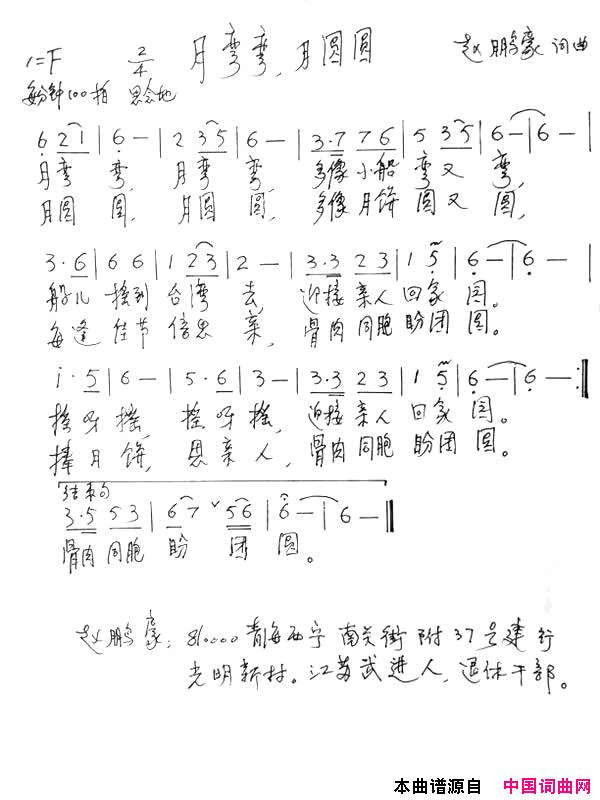 1=F 2/4 月弯弯，月圆圆 赵鹏豪 词曲
每分钟100拍 思念地
6 2 1 | 6 — | 2 3 5 | 6 — | 3·7 7 6 | 5 3 5 | 6 — | 6 — |
月弯 弯， 月弯 弯， 多像小船 弯又 弯，
月圆 圆， 月圆 圆， 多像月饼 圆又 圆，
3·6 | 6 6 | 1 2 3 | 2 — | 3·3 2 3 | 1 5 | 6 — | 6 — |
船儿 摇到 台湾 去， 迎接亲人 回家 圆。
每逢 佳节 倍思 亲， 骨肉同胞 盼团 圆。
i·5 | 6 — | 5·6 | 3 — | 3·3 2 3 | 1 5 | 6 — | 6 — :|
摇呀 摇， 摇呀 摇， 迎接亲人 回家 圆。
捧月 饼， 思亲 人， 骨肉同胞 盼团 圆。
结束句
3·5 5 3 | 6 7 ˅ 5 6 | 6 — | 6 — ‖
骨肉同胞 盼 团 圆。
赵鹏豪：810000 青海西宁南关街附37号建行
光明新村。江苏武进人，退休干部。
本曲谱源自 中国词曲网